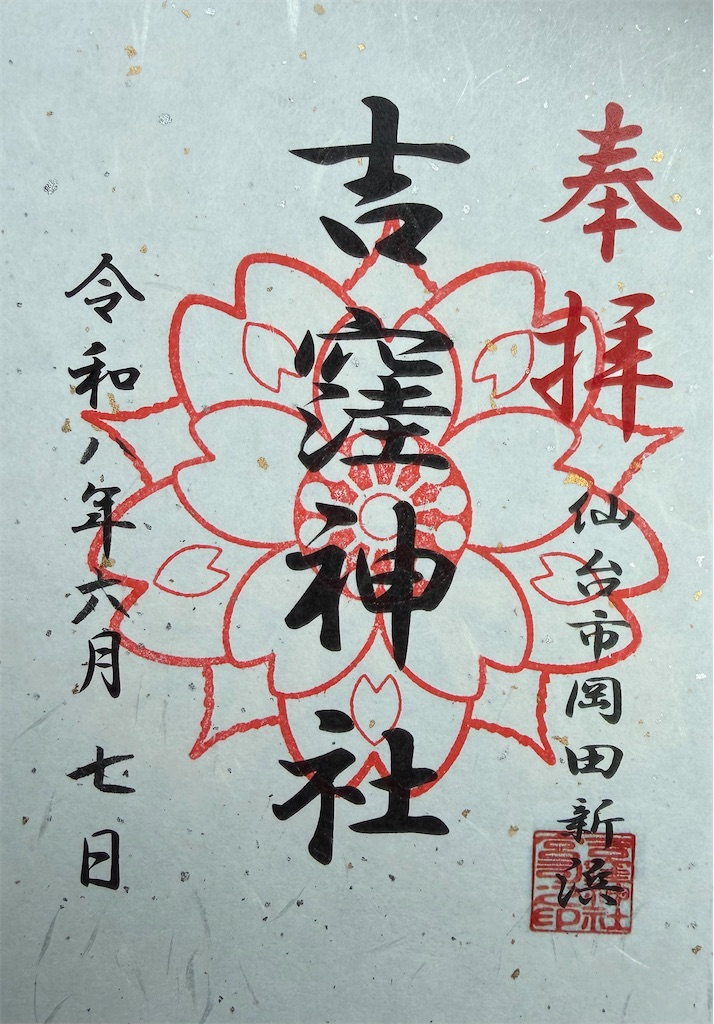 奉拝
仙台市岡田新浜
吉窪神社
令和八年六月七日